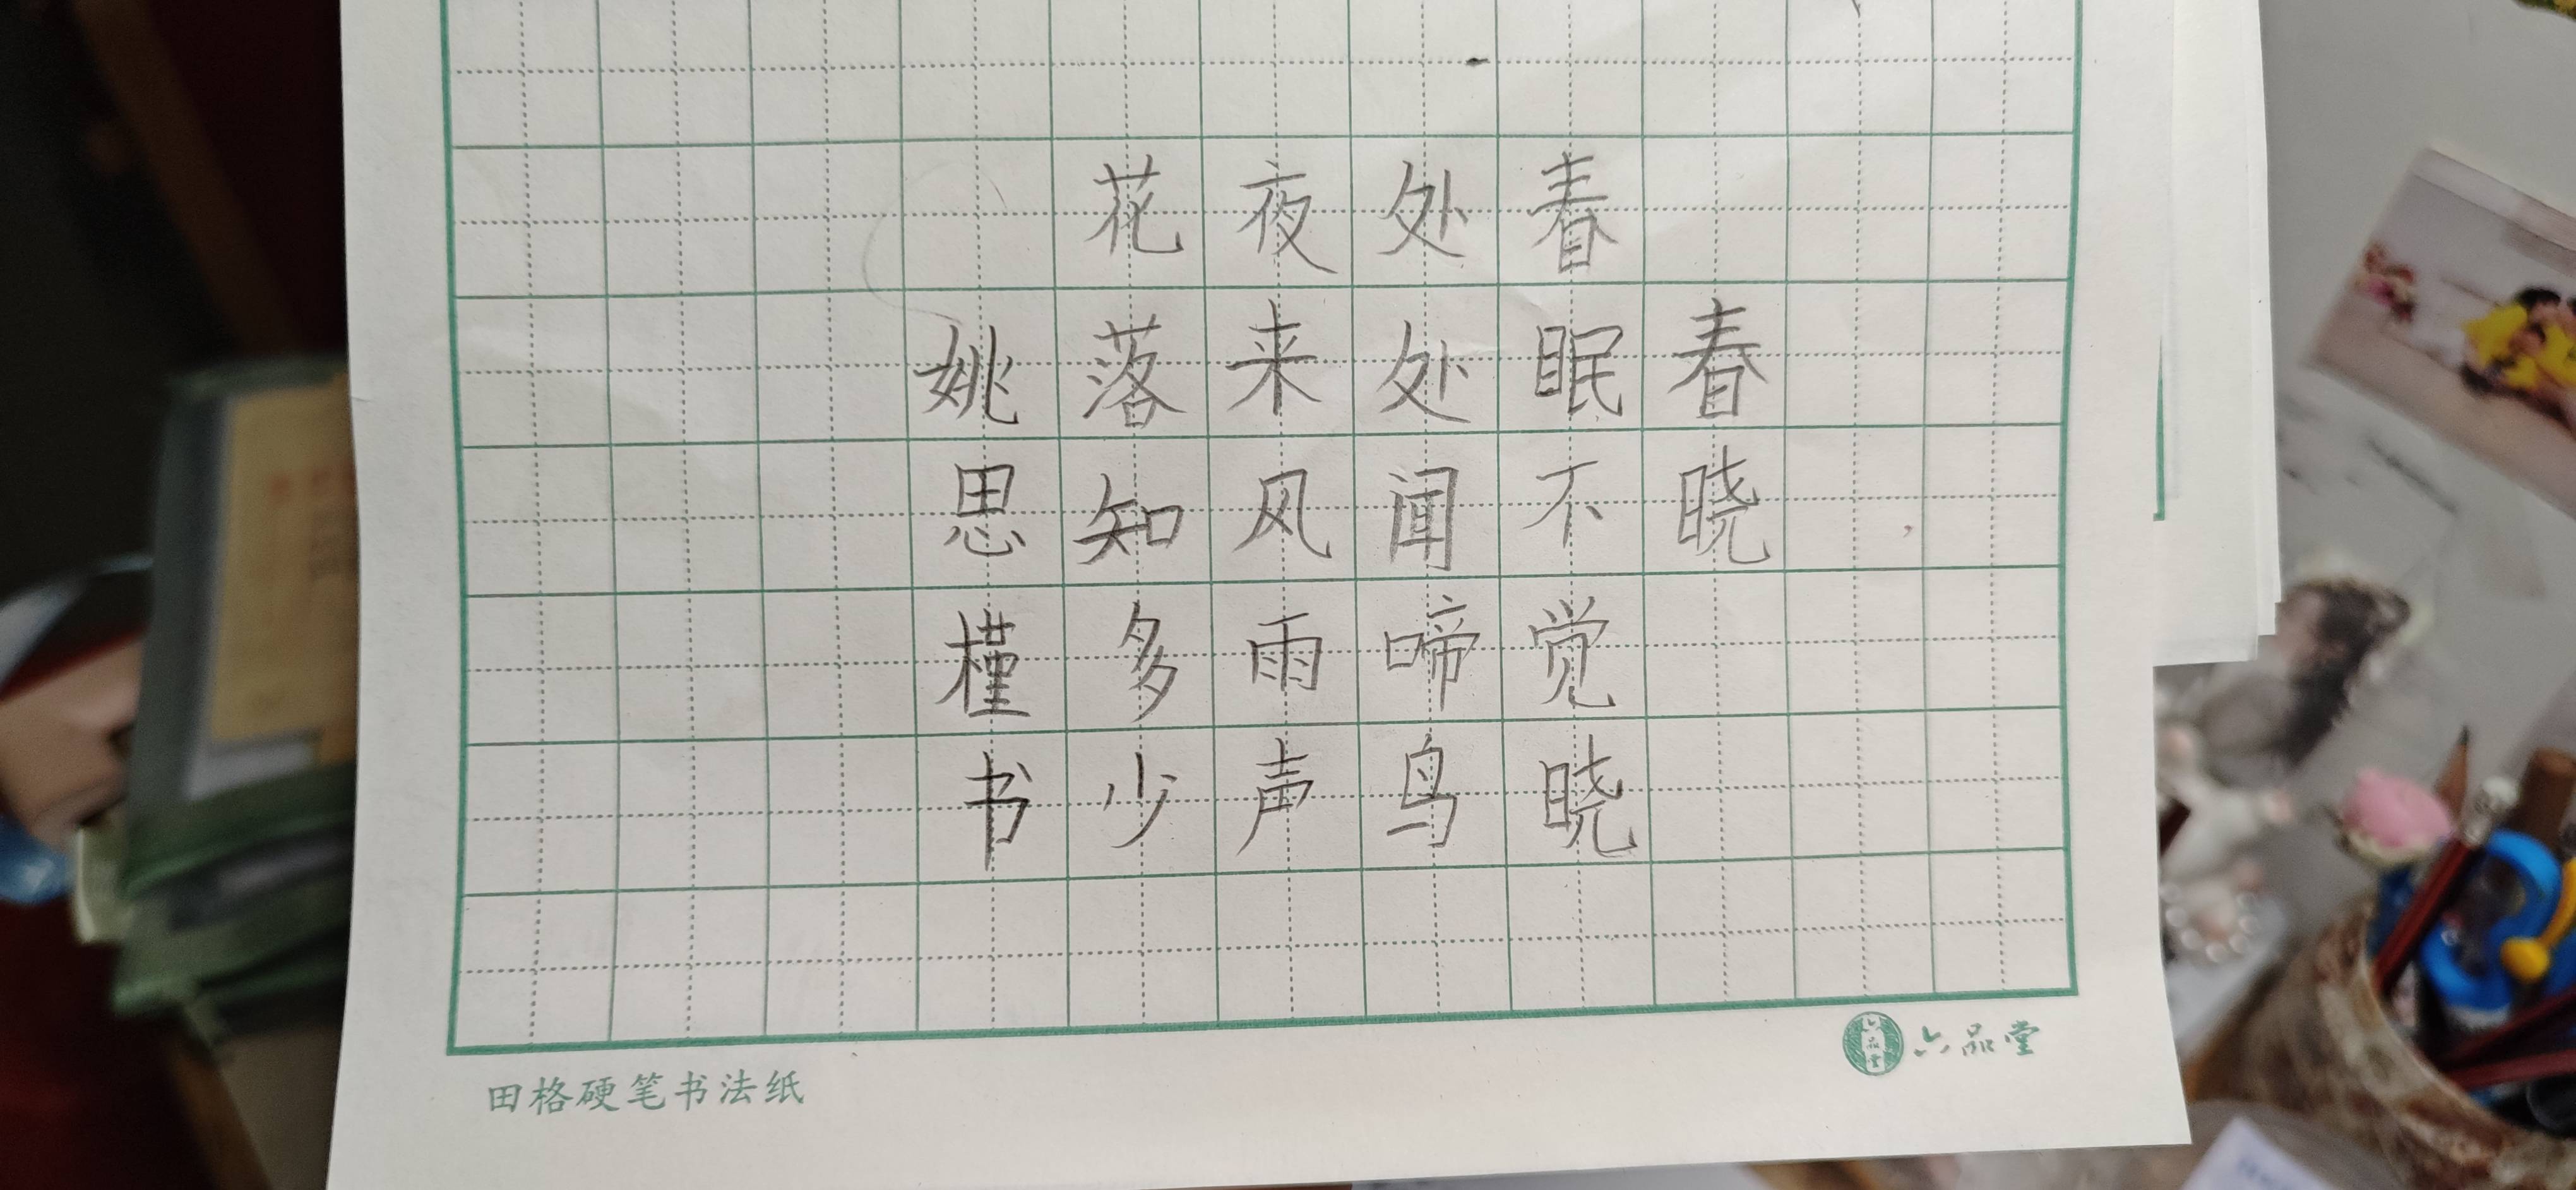 春晓
春眠不觉晓
处处闻啼鸟
夜来风雨声
花落知多少
姚思槿书
田格硬笔书法纸
六品堂
六品堂